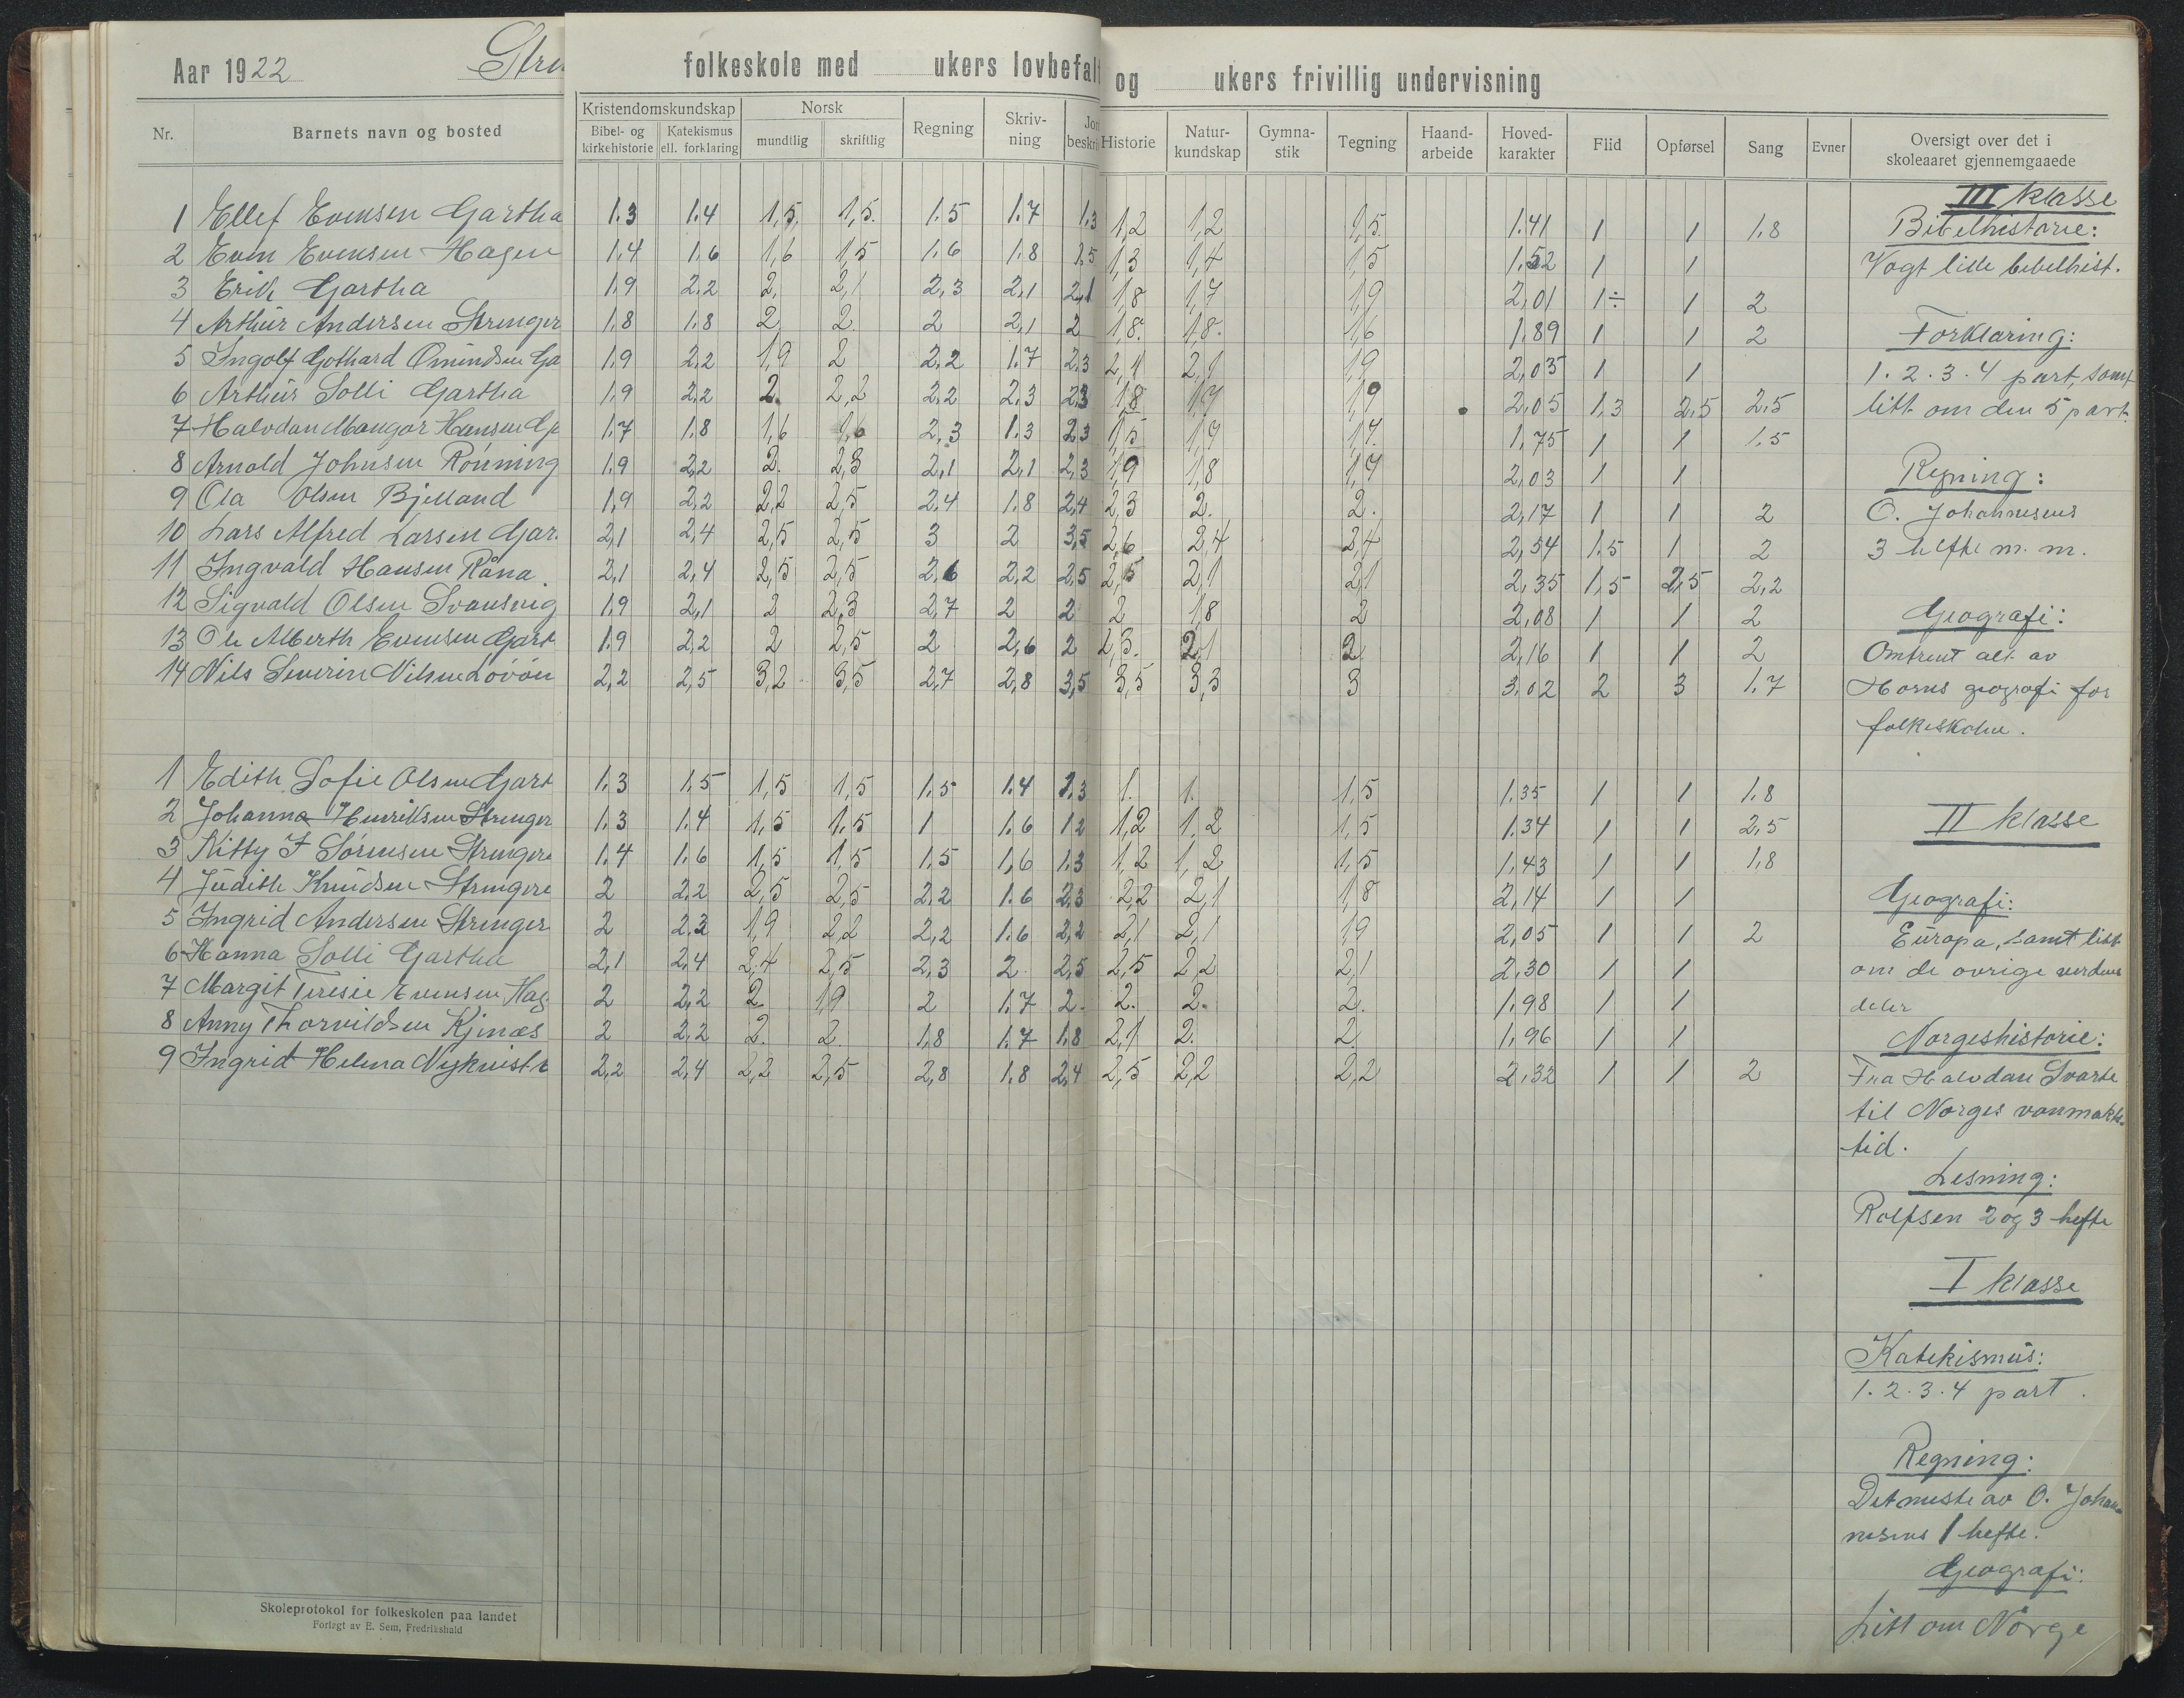 Aar 1922 Stre folkeskole med ukers lovbefalt og ukers frivillig undervisning
Nr. Barnets navn og bosted Kristendomskundskap Bibel- og kirkehistorie Katekismus ell. forklaring Norsk mundtlig skriftlig Regning Skriv-ning Jor beskri Historie Natur-kundskap Gymna-stik Tegning Haand-arbeide Hoved-karakter Flid Opførsel Sang Evner Oversigt over det i skoleaaret gjennemgaaede
III klasse
1 Ellef Evensen Gartha 1.3 1.4 1,5 1,5 1.5 1.7 1.3 1,2 1,2 1,5 1.41 1 1 1.8 Bibelhistorie:
2 Even Evensen Hagen 1.4 1.6 1,6 1,5 1.6 1.8 1.5 1,3 1,4 1,5 1.52 1 1 Vogt lille bibelhist.
3 Erik Gartha 1.9 2.2 2, 2,1 2,3 2,1 2,1 1,8 1,7 1,9 2,01 1÷ 1 2
4 Arthur Andersen Strenger 1.8 1.8 2 2 2 2,1 2 1,8. 1,8. 1,6 1.89 1 1 2 Forklaring:
5 Ingolf Gothard Omundsen Ga 1.9 2,2 1,9 2 2.2 1.7 2,3 2,1 2,1 1,9 2,03 1 1 1. 2. 3. 4 part, samt
6 Arthur Solli Gartha 1.9 2.2 2. 2,2 2.2 2.3 2.3 1,8 1,7 1,9 2,05 1,3 2,5 2,5 litt om den 5 part.
7 Halvdan Mangor Hansen Gj 1.7 1.8 1,6 1,6 2,3 1.3 2.3 1,5 1,7 1,7. 1,75 1 1 1.5
8 Arnold Johnsen Rønning 1.9 2,2 2. 2,3 2,1 2,1 2,3 1,9 1,8 1,7 2,03 1 1 Regning:
9 Ola Olsen Bjelland 1,9 2,2 2,2 2,5 2.4 1.8 2,4 2,3 2. 2. 2,17 1 1 2 O. Johannesens
10 Lars Alfred Larsen Gar. 2,1 2,4 2,5 2,5 3 2 3,5 2,6 2,4 2,4 2,54 1.5 1 2 3 hefte m. m.
11 Ingvald Hansen Råna. 2,1 2,4 2,5 2,5 2,6 2,2 2,5 2,5 2,1 2,1 2,35 1,5 2,5 2,2
12 Sigvald Olsen Svansvig 1.9 2,1 2 2,3 2,7 2 2 2 1,8 2 2,08 1 1 2 Geografi:
13 Ole Alberth Evensen Gart 1.9 2,2 2 2,5 2 2,6 2 2,3. 2,1 2 2,16 1 1 2 Omtrent alt av
14 Nils Severin Nilsen Løvøen 2,2 2,5 3,2 3,5 2,7 2,8 3,5 3,5 3,3 3 3,02 2 3 1.7 Horns geografi for
folkeskolen.
1 Edith Sofie Olsen Gart 1.3 1.5 1,5 1,5 1.5 1.4 1.3 1. 1. 1,5 1.35 1 1 1.8
2 Johanna Henriksen Strenger 1.3 1.4 1,5 1.5 1 1.6 1.2 1,2 1,2 1,5 1.34 1 1 2,5 II klasse
3 Kitty F Sørensen Strengere 1.4 1.6 1,5 1,5 1.5 1,6 1.3 1,2 1,2 1,5 1,43 1 1 1.8
4 Judith Knudsen Strengere 2 2.2 2,5 2,5 2.2 1.6 2.3 2,2 2,1 1,8 2,14 1 1 Geografi:
5 Ingrid Andersen Strenger 2 2.3 1,9 2,2 2,2 1.6 2,2 2,1 2,1 1,9 2,05 1 1 2 Europa, samt litt
6 Hanna Solli Gartha 2,1 2,4 2,4 2,5 2,3 2. 2,5 2,5 2,2 2,1 2,30 1 1 om de øvrige verdens
7 Margit Teresie Evensen Hag. 2 2,2 2. 1,9 2 1.7 2. 2. 2. 2. 1,98 1 1 deler
8 Anny Thorvildsen Kjenæs 2 2,2 2. 2. 1.8 1.7 1,8 2,1 2. 2 1,96 1 1 Norgeshistorie:
9 Ingrid Helena Nykvist 2,2 2,4 2,2 2,5 2,8 1.8 2,4 2,5 2,2 2,2 2,32 1 1 2 Fra Halvdan Svarte
til Norges vanmakts-
tid.
Lesning:
Rolfsen 2 og 3 hefte
I klasse
Katekismus:
1. 2. 3. 4 part.
Regning:
Det meste av O. Johan-
nesens 1 hefte.
Geografi:
Litt om Norge
Skoleprotokol for folkeskolen paa landet
Forlagt av E. Sem, Fredrikshald